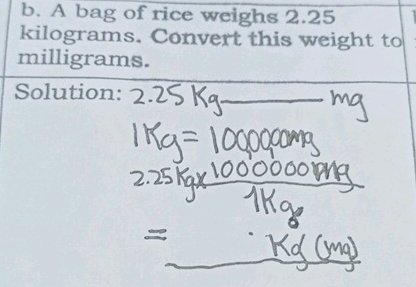 b. A bag of rice weighs 2.25
kilograms. Convert this weight to
milligrams.
Solution: 2.25 Kg——— mg
1Kg = 100,000mg
2.25 Kg x 1000000 mg
1Kg
= . Kg (mg)